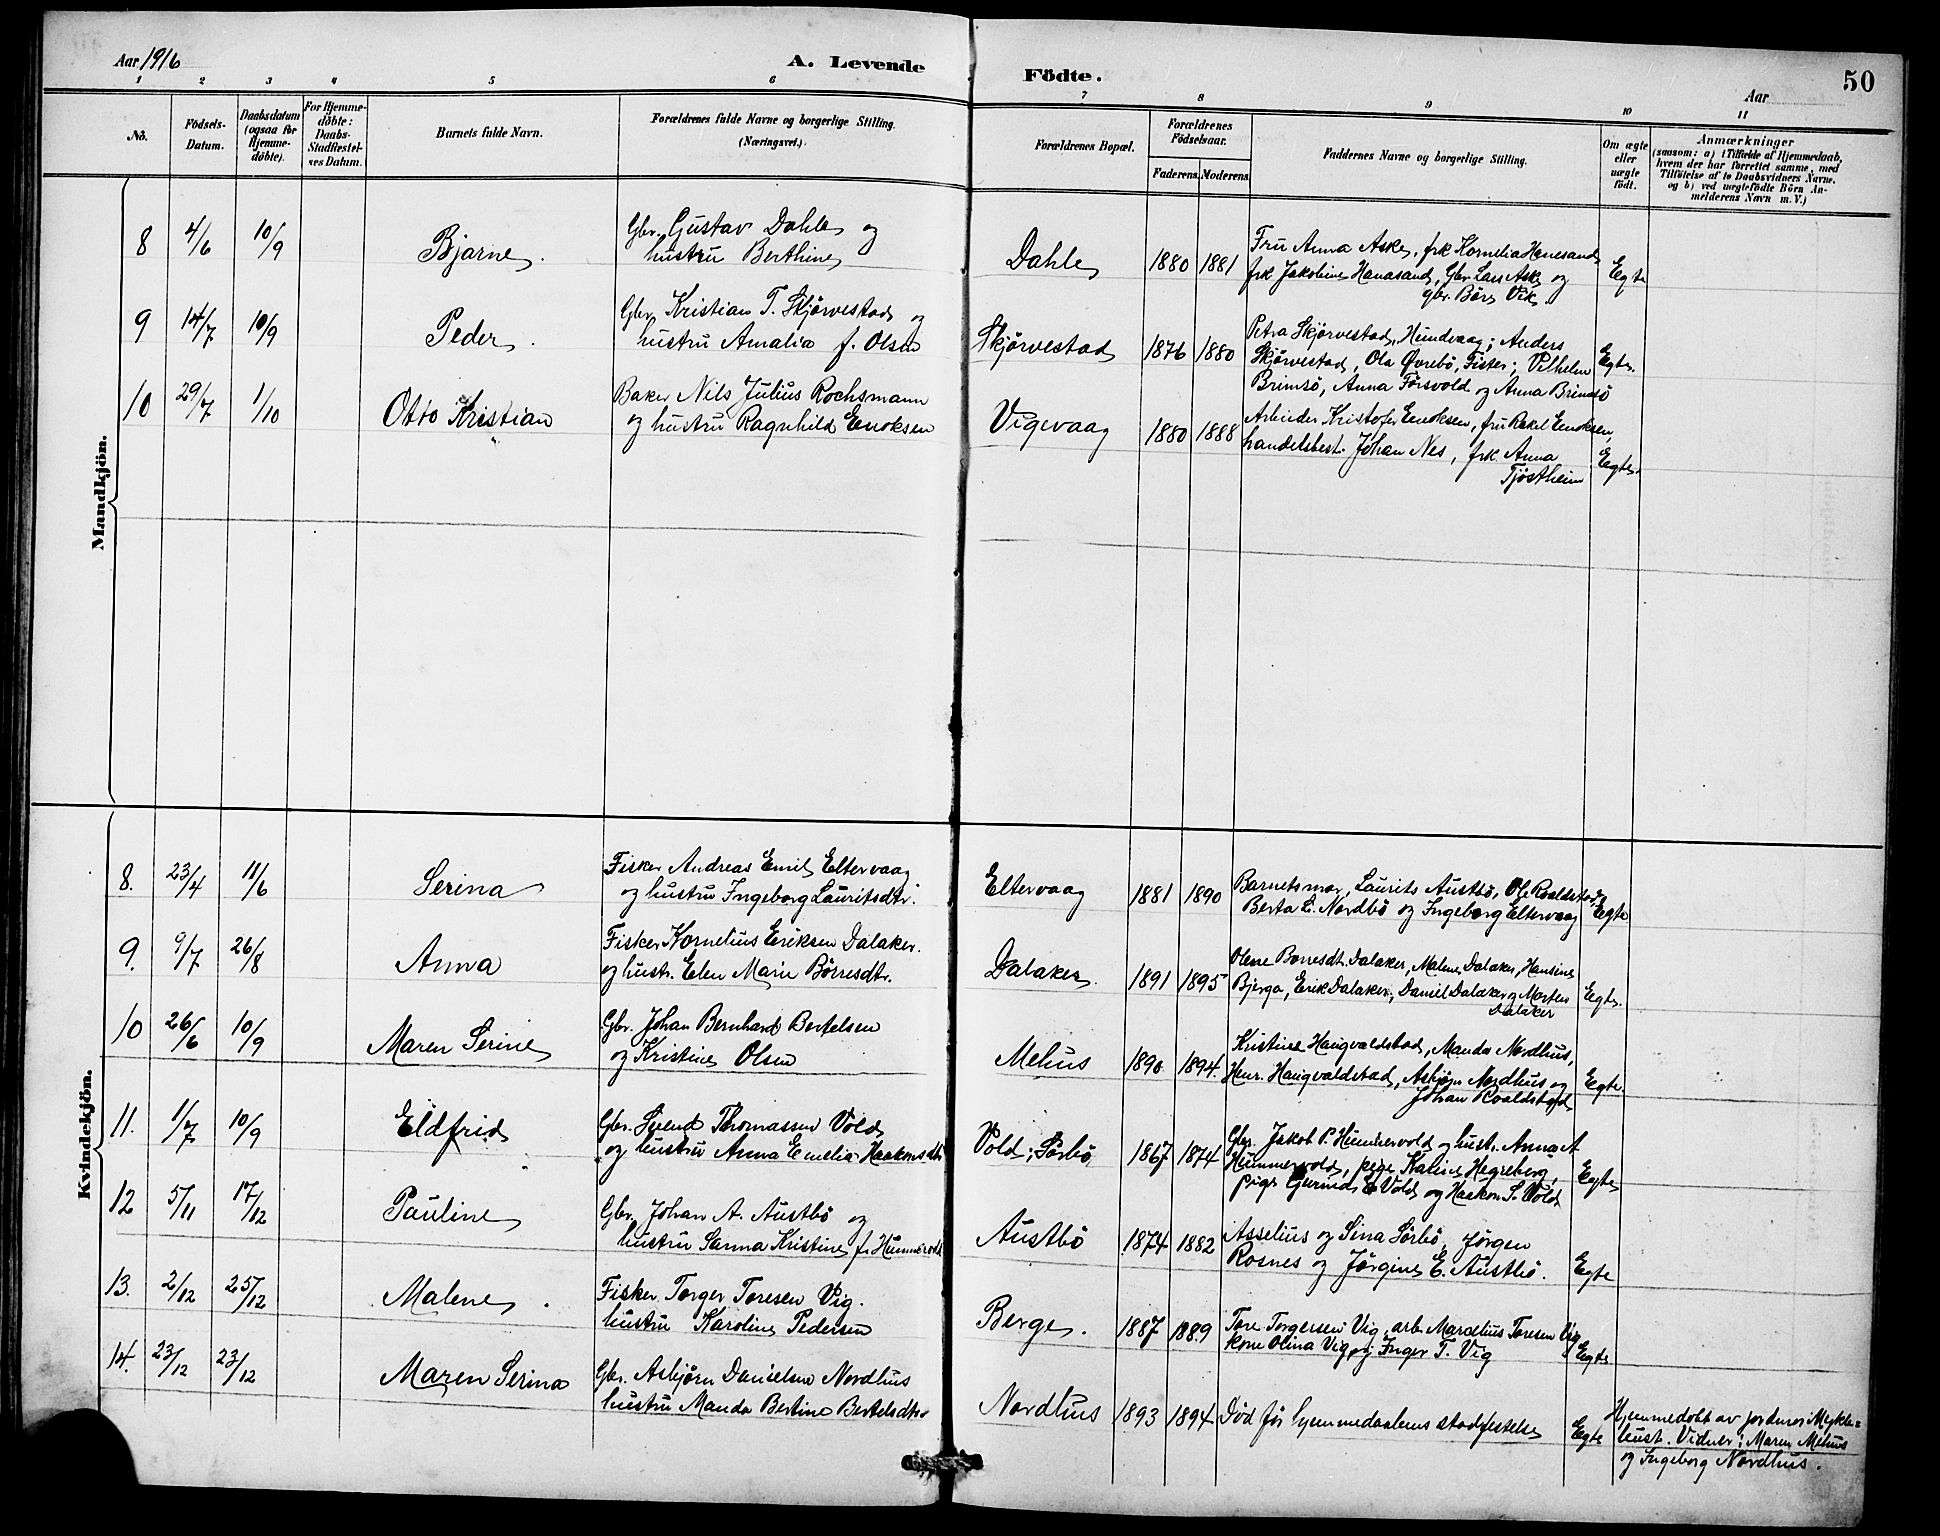 Aar 1916
A. Levende Födte.
Aar
50
1 2 3 4 5 6 7 8 9 10 11
No.
Födsels-
Datum.
Daabsdatum
(ogsaa for
Hjemme-
döbte).
For Hjemme-
döbte:
Daabs-
Stadfestel-
ses Datum.
Barnets fulde Navn.
Forældrenes fulde Navne og borgerlige Stilling.
(Næringsvei.)
Forældrenes Bopæl.
Forældrenes
Födselsaar.
Faderens. Moderens.
Faddernes Navne og borgerlige Stilling.
Om ægte
eller
uægte
födt.
Anmærkninger
(saasom: a) i Tilfælde af Hjemmedaab,
hvem der har forrettet samme, med
Tilföielse af to Daabsvidners Navne.
og b) ved uægtefödte Börn An-
melderens Navn m. V.)
Mandkjön.
8 4/6 10/9 Bjarne.
Gbr. Gustav Dahle og
hustru Berthine
Dahle 1880 1881
Fru Anna Aske, frk Kornelia Hanesand
frk Jakobine Hanasand, Gbr Lars Ask og
gbr. Bår Vik
Egte
9 14/7 10/9 Peder.
Gbr Kristian T. Skjørvestad og
hustru Amalia f. Olsen
Skjörvestad 1876 1880
Petra Skjørvestad, Hundvaag; Anders
Skjørvestad, Ola Øvrebö, Fister; Vilhelm
Brimsö, Anna Førsvold og Anna Brimsö
Egte.
10 29/7 1/10 Otto Kristian
Baker Nils Julius Rochsmann
og hustru Ragnhild Enoksen
Vigevaag 1880 1888
Arbeider Kristofer Enoksen, fru Rakel Enoksen,
handelsbest. Johan Nes, frk Anna
Tjöstheim
Egte.
Kvindekjön.
8. 23/4 11/6 Serina
Fisker Andreas Emil Eltervaag
og hustru Ingeborg Lauritsdtr.
Eltervaag 1881 1890
Barnets mor, Laurits Austbö, Ole Roaldstad,
Berta L. Nordbö og Ingeborg Eltervaag
Egte
9. 9/7 26/8 Anna
Fisker Kornelius Eriksen Dalaker.
og hustr. Elen Marie Börresdtr.
Dalaker. 1891 1895
Olene Borresdt. Dalaker, Malene Dalaker, Hansine
Bjerga, Erik Dalaker, Daniel Dalaker og Morten
Dalaker
Egte.
10 26/6 10/9 Maren Serine
Gbr. Johan Bernhard Bertelsen
og Kristine Olsen
Mehus 1890 1894.
Kristine Haugvaldstad, Manda Nordhus,
Henr. Haugvaldstad, Asbjørn Nordhus og
Johan Roaldstad
Egte.
11. 1/7 10/9 Eldfrid
Gbr. Svend Thomassen Vold
og hustru Anna Emelia Haakonsdtr
Vold; Sørbö 1867 1874
Gbr. Jakob P. Hummervold og hust. Anna A
Hummervold, pige Kaline Hegreberg,
pige Gurine E Vold og Haakon S. Vold
Egte
12 5/11 17/12 Pauline
Gbr. Johan A. Austbö og
hustru Sanna Kristine f. Hummervold
Austbö 1874 1882
Asselius og Sina Sörbö, Jørgen
Rosnes og Jørgine E. Austbö.
Egte
13. 2/12 25/12 Malene.
Fisker Torger Toresen Vig.
hustru Karoline Pedersen
Berge. 1887 1889
Tore Torgersen Vig, arb. Marselius Toresen Vig
kone Olina Vig, og Inger T. Vig
Egte
14. 23/12 23/12 Maren Serina
Gbr. Asbjørn Danielsen Nordhus
hustru Manda Bertine Bertelsdtr.
Nordhus 1893 1894
Død før hjemmedaabens stadfestelse
Egte
Hjemmedöbt av jordmor Mykle=
bust. Vidner: Maren Mehus
og Ingeborg Nordhus.